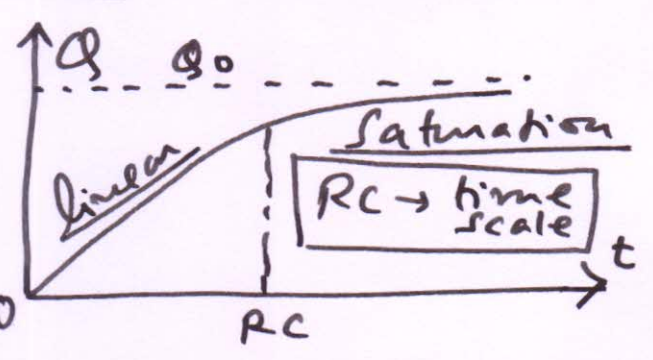 Q
Q0
linear
Saturation
RC → time
scale
t
0
RC